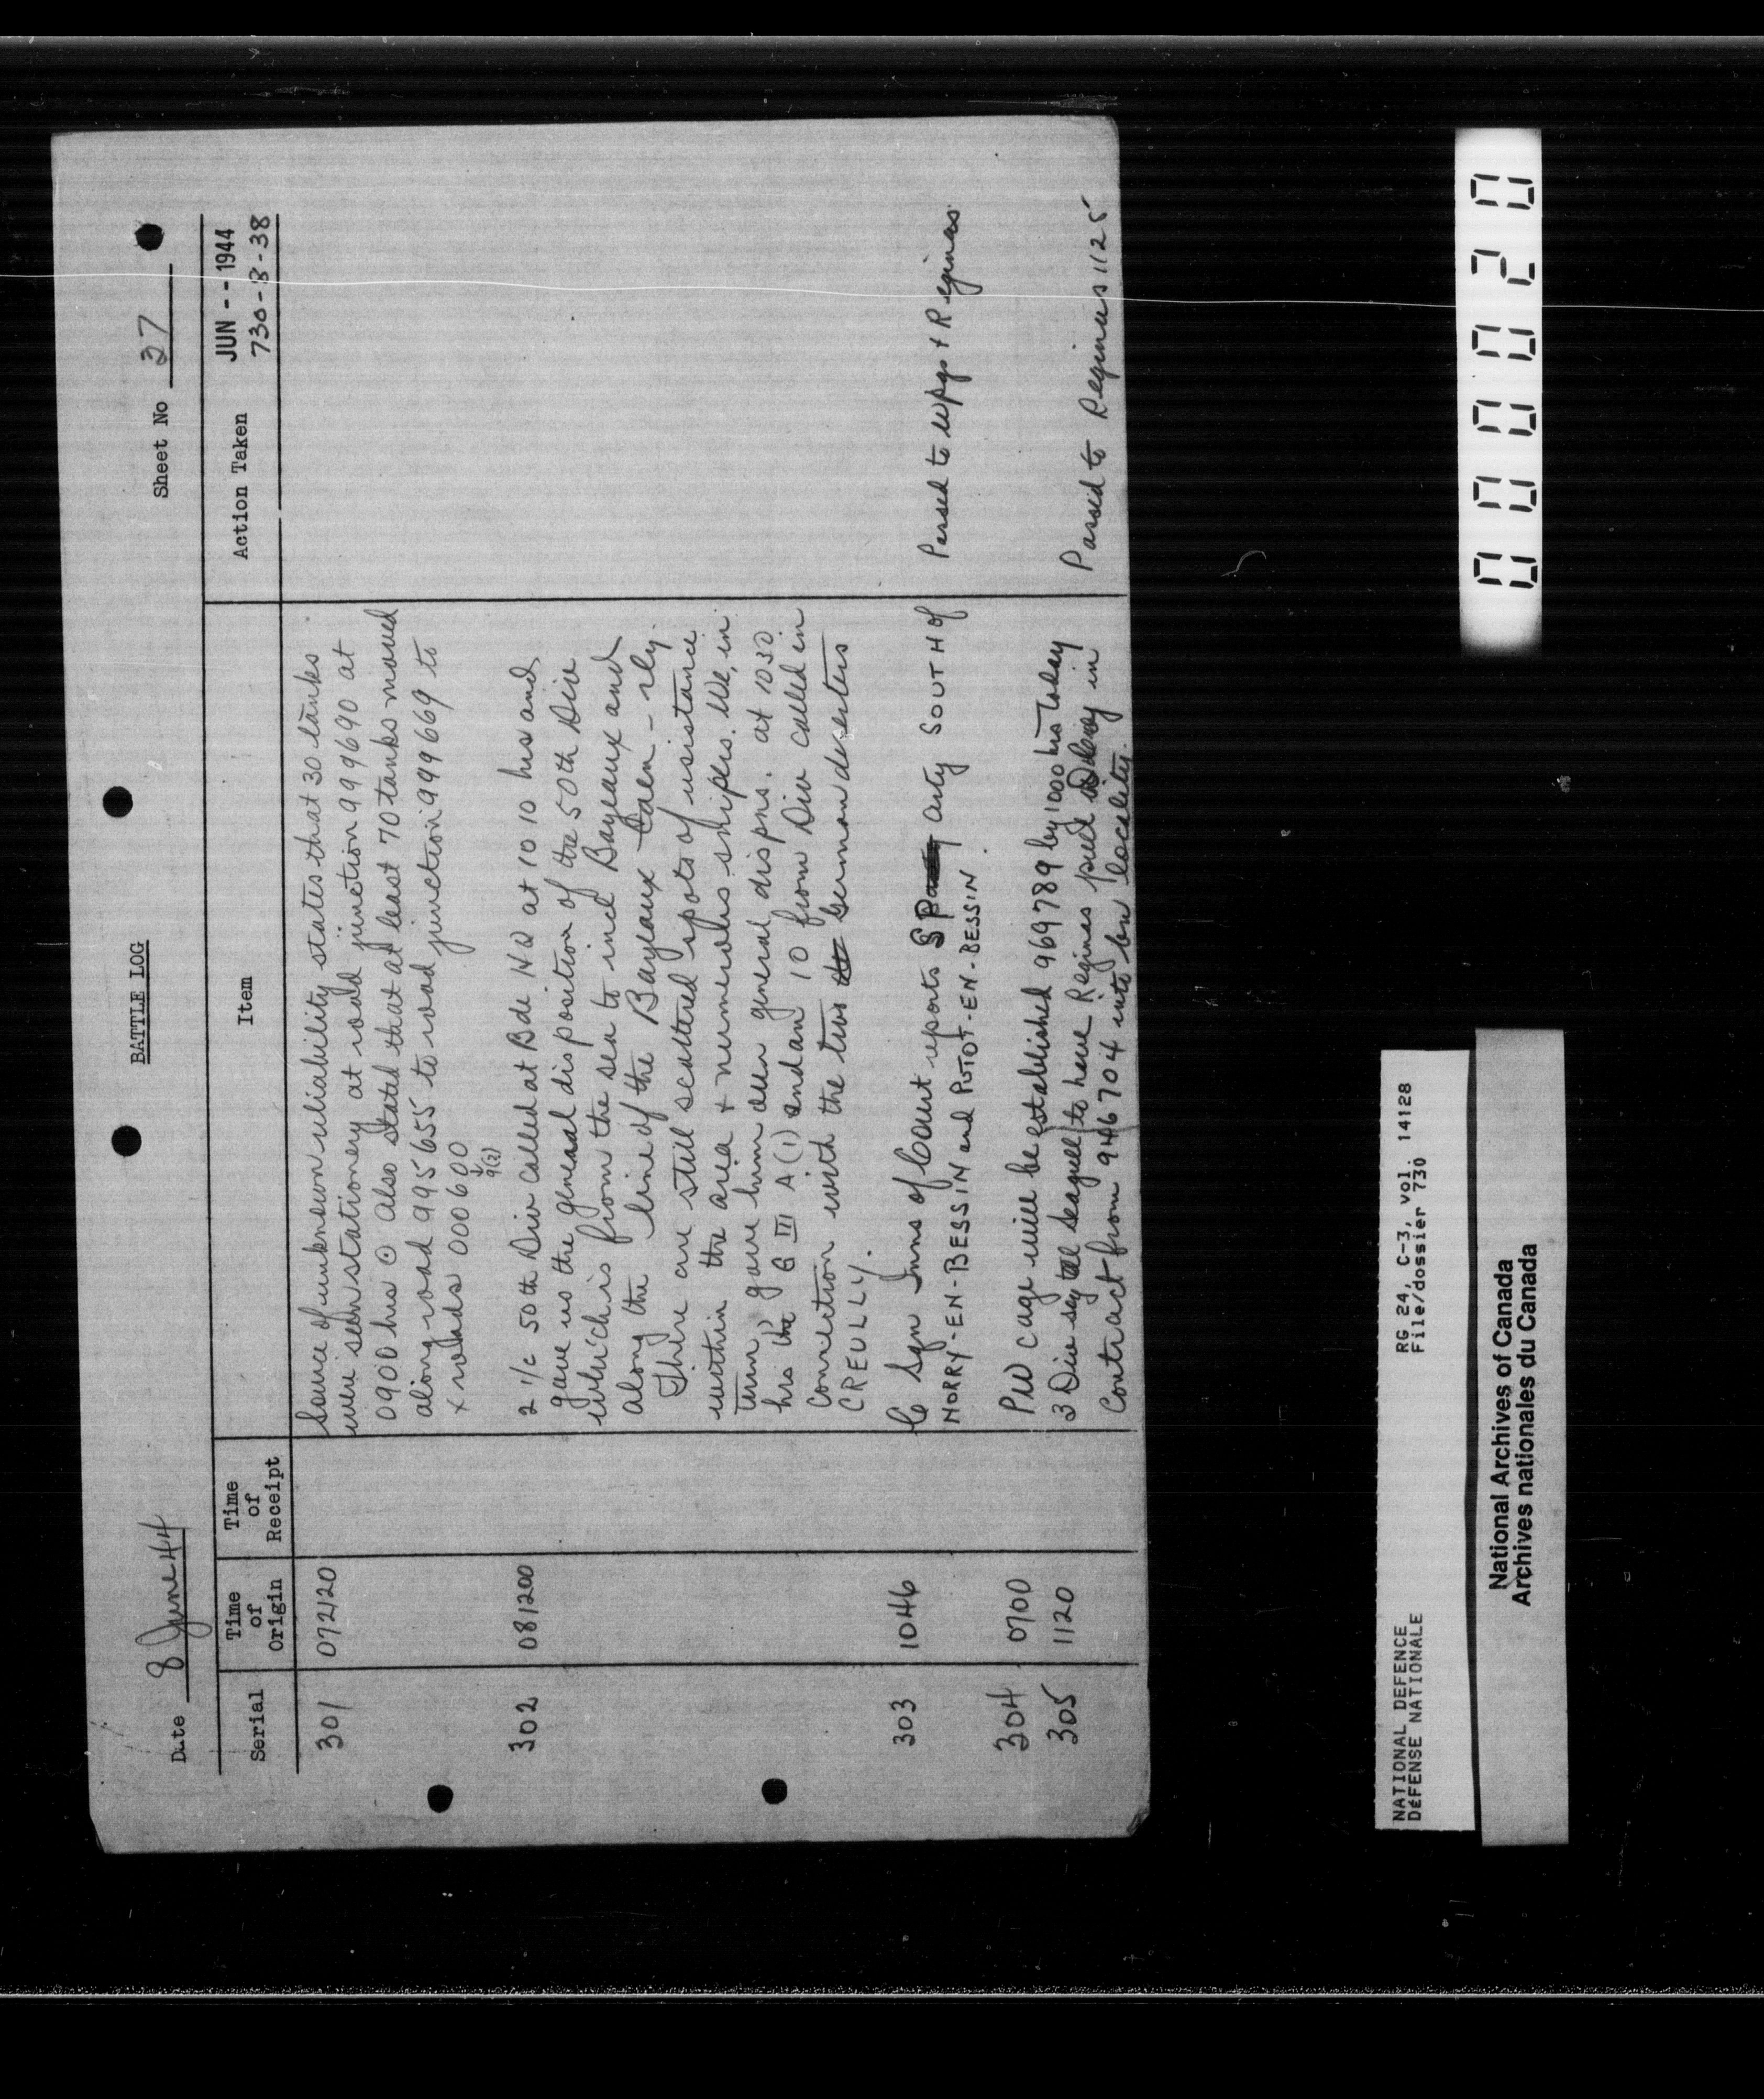 BATTLE LOG
Date 8 June 44
Sheet No 27
Serial
Time of Origin
Time of Receipt
Item
Action Taken
JUN -- 1944
730-B-38
301 072120 Source of unknown reliability states that 30 tanks
were seen stationery at road junction 999690 at
0900 hrs ⊙ Also stated that at least 70 tanks moved
along road 995655 to road junction 999669 to
x roads 000600
9(2)
302 081200 2 i/c 50th Div called at Bde HQ at 1010 hrs and
gave us the general disposition of the 50th Div
which is from the sea to incl Bayeaux and
along the line of the Bayeaux - Caen - rly.
There are still scattered spots of resistance
within the area + numerous snipers. We, in
turn, gave him our general dispns. at 1030
hrs the G III A(1) and an IO from Div called in
connection with the two German deserters
CREULLY.
303 1046 C Sqn Inns of Court reports SP arty SOUTH of
NORRY-EN-BESSIN and PUTOT-EN-BESSIN.
Passed to Wpgs + Reginas
304 0700 PW cage will be established 969789 by 1000 hrs today
305 1120 3 Div say tell Seagull to have Reginas pull in
Contract from 946704 into bn locality.
Passed to Reginas 1125
000020
NATIONAL DEFENCE RG 24, C-3, vol. 14128
DÉFENSE NATIONALE File/dossier 730
National Archives of Canada
Archives nationales du Canada